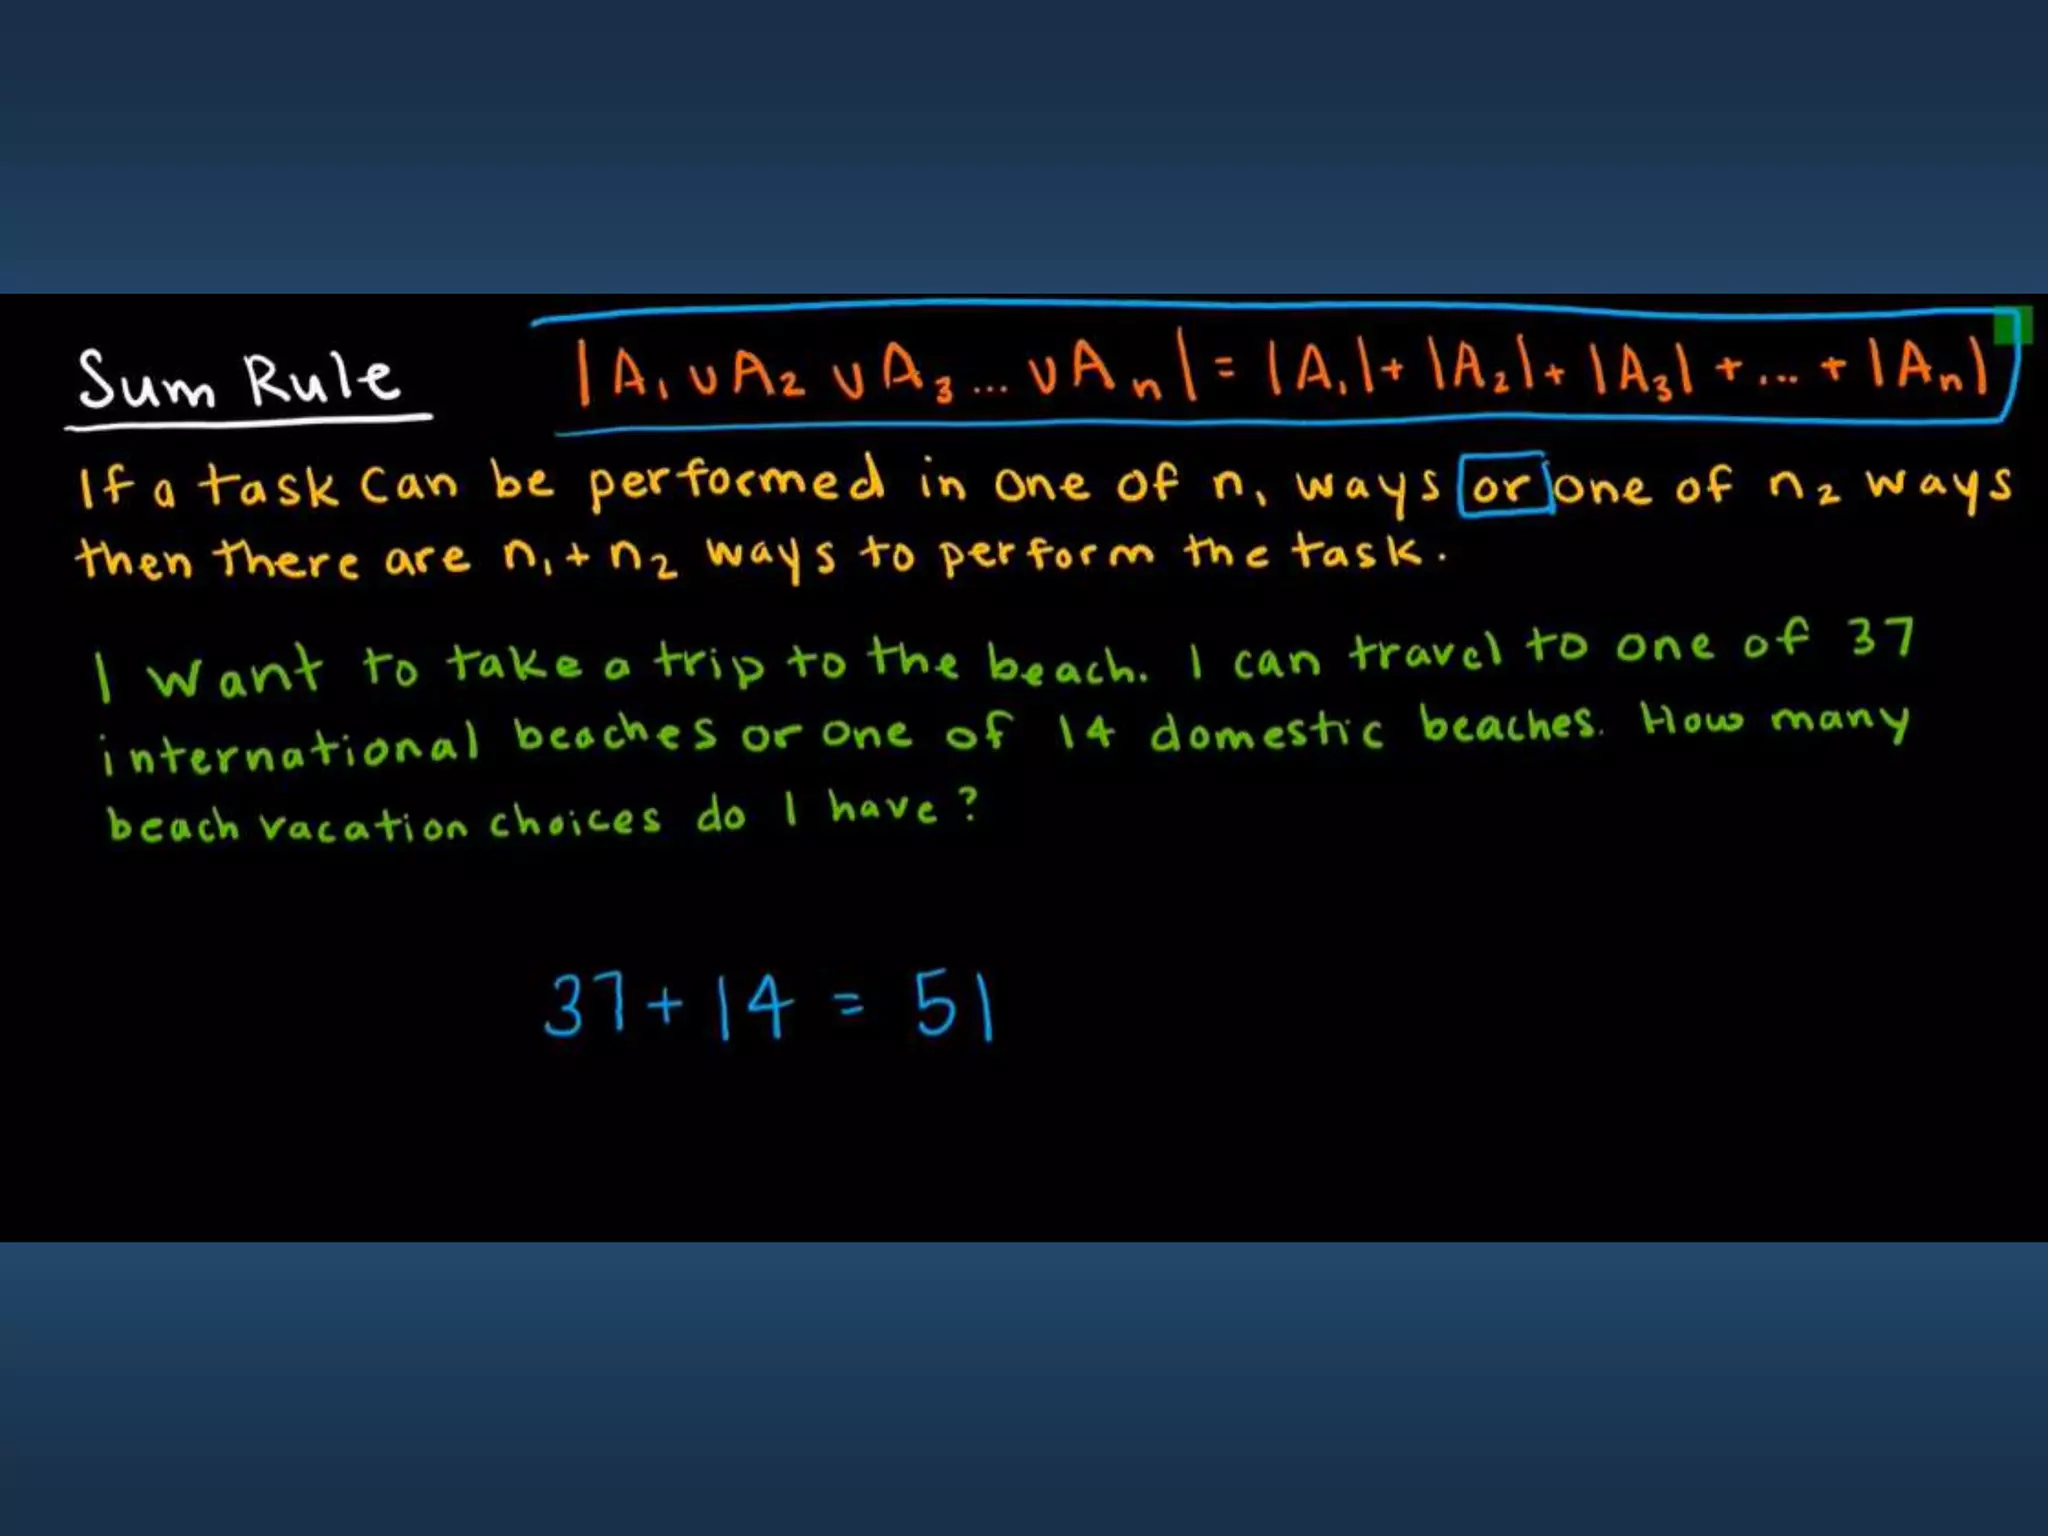 Sum Rule |A₁ ∪ A₂ ∪ A₃ ... ∪ Aₙ| = |A₁| + |A₂| + |A₃| + ... + |Aₙ|
If a task can be performed in one of n₁ ways or one of n₂ ways
then there are n₁ + n₂ ways to perform the task.
I want to take a trip to the beach. I can travel to one of 37
international beaches or one of 14 domestic beaches. How many
beach vacation choices do I have?
37 + 14 = 51